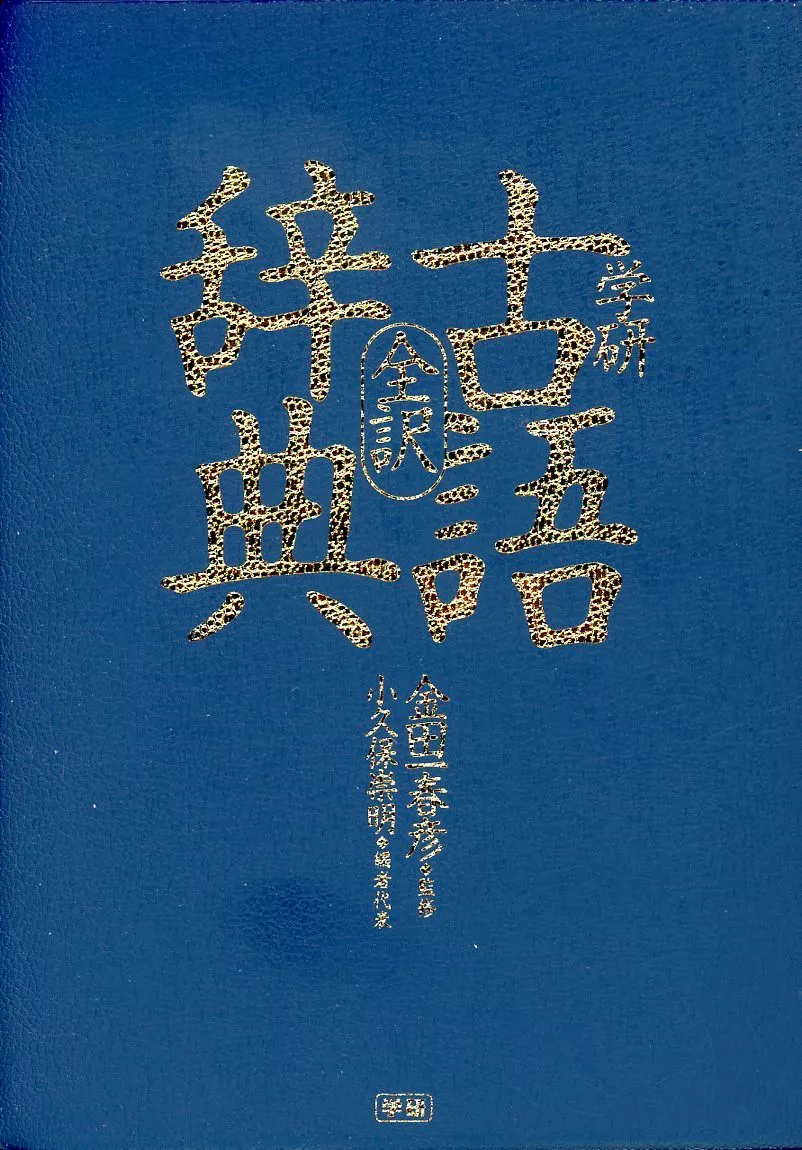 学研
古語
辞典
全訳
金田一春彦◆監修
小久保崇明◆編者代表
学研